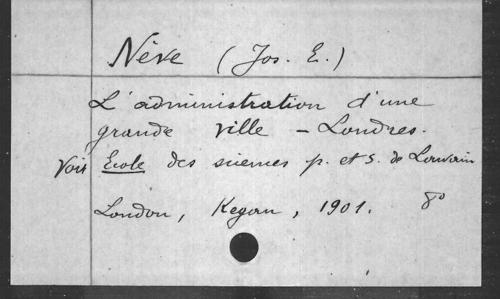 Nève (Jos. E.)
L'administration d'une
grande ville - Londres.
Voir Ecole des sciences p. et s. de Louvain
London, Kegan, 1901. 8°